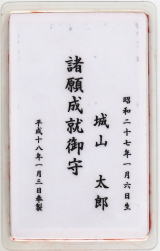 昭和二十七年一月六日生
城山　太郎
諸願成就御守
平成十八年一月三日奉製